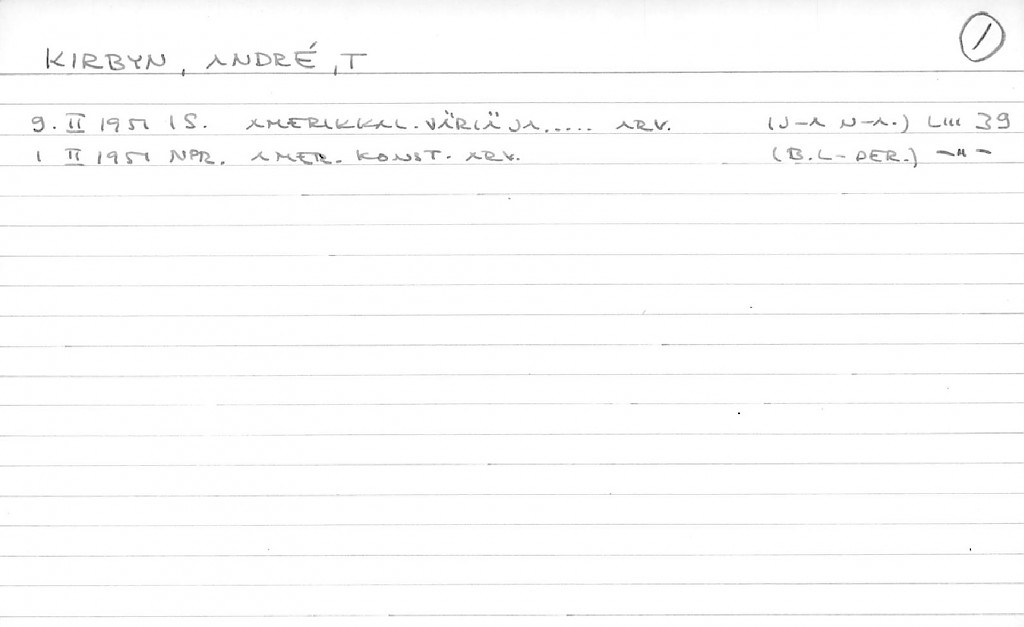 KIRBYN, ANDRÉ, T
1
9. II 1951 IS. AMERIKKAL. VÄRIÄ JA..... ARV. (J-A N-A.) LIII 39
1 II 1951 NPR. AMER. KONST. ARV. (B. L-DER.) -"-